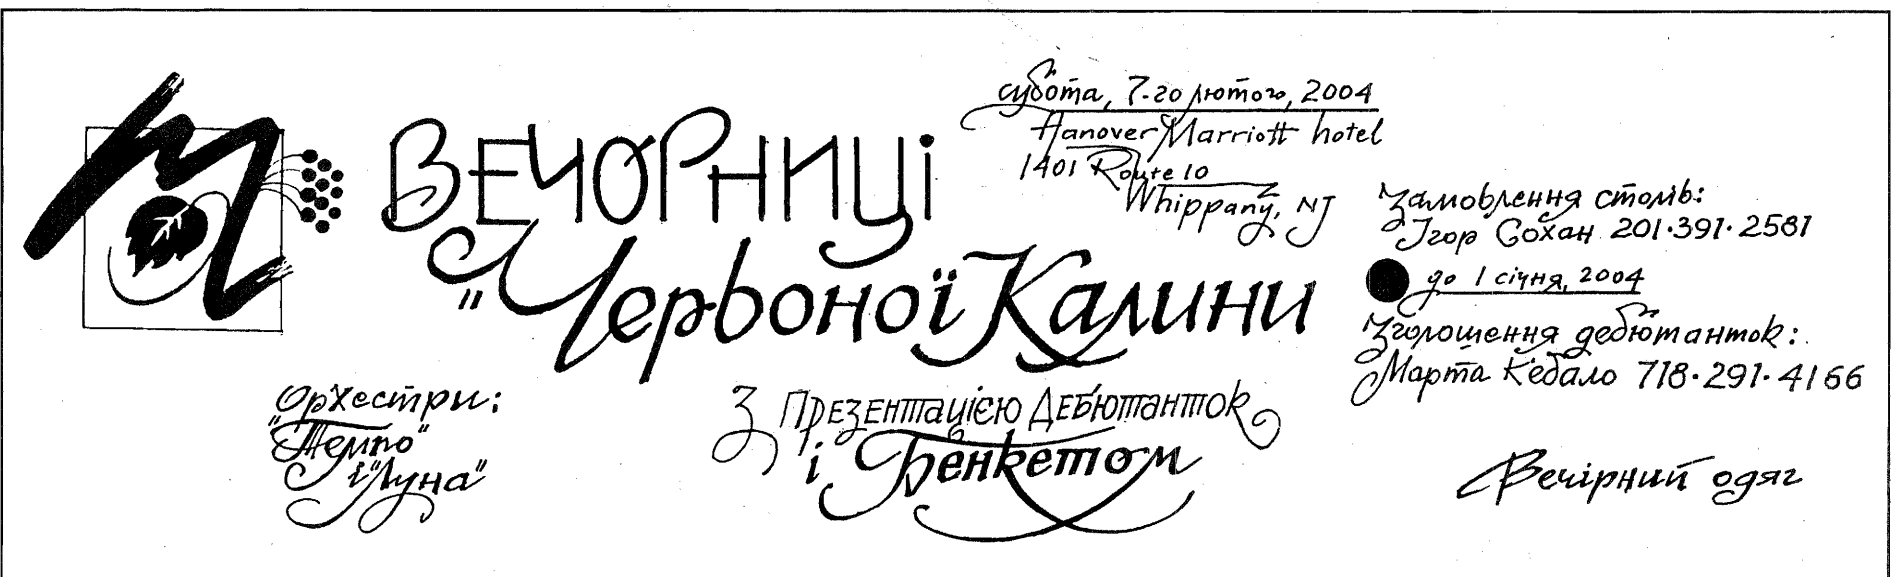 ВЕЧОРНИЦІ
"Червоної Калини
субота, 7-го лютого, 2004
Hanover Marriott hotel
1401 Route 10
Whippany, NJ
Замовлення столів:
Ігор Сохан 201·391·2581
до 1 січня, 2004
Зголошення дебютанток:
Марта Кебало 718·291·4166
Оркестри:
"Темпо"
і "Луна"
З Презентацією Дебютанток
і Бенкетом
Вечірний одяг